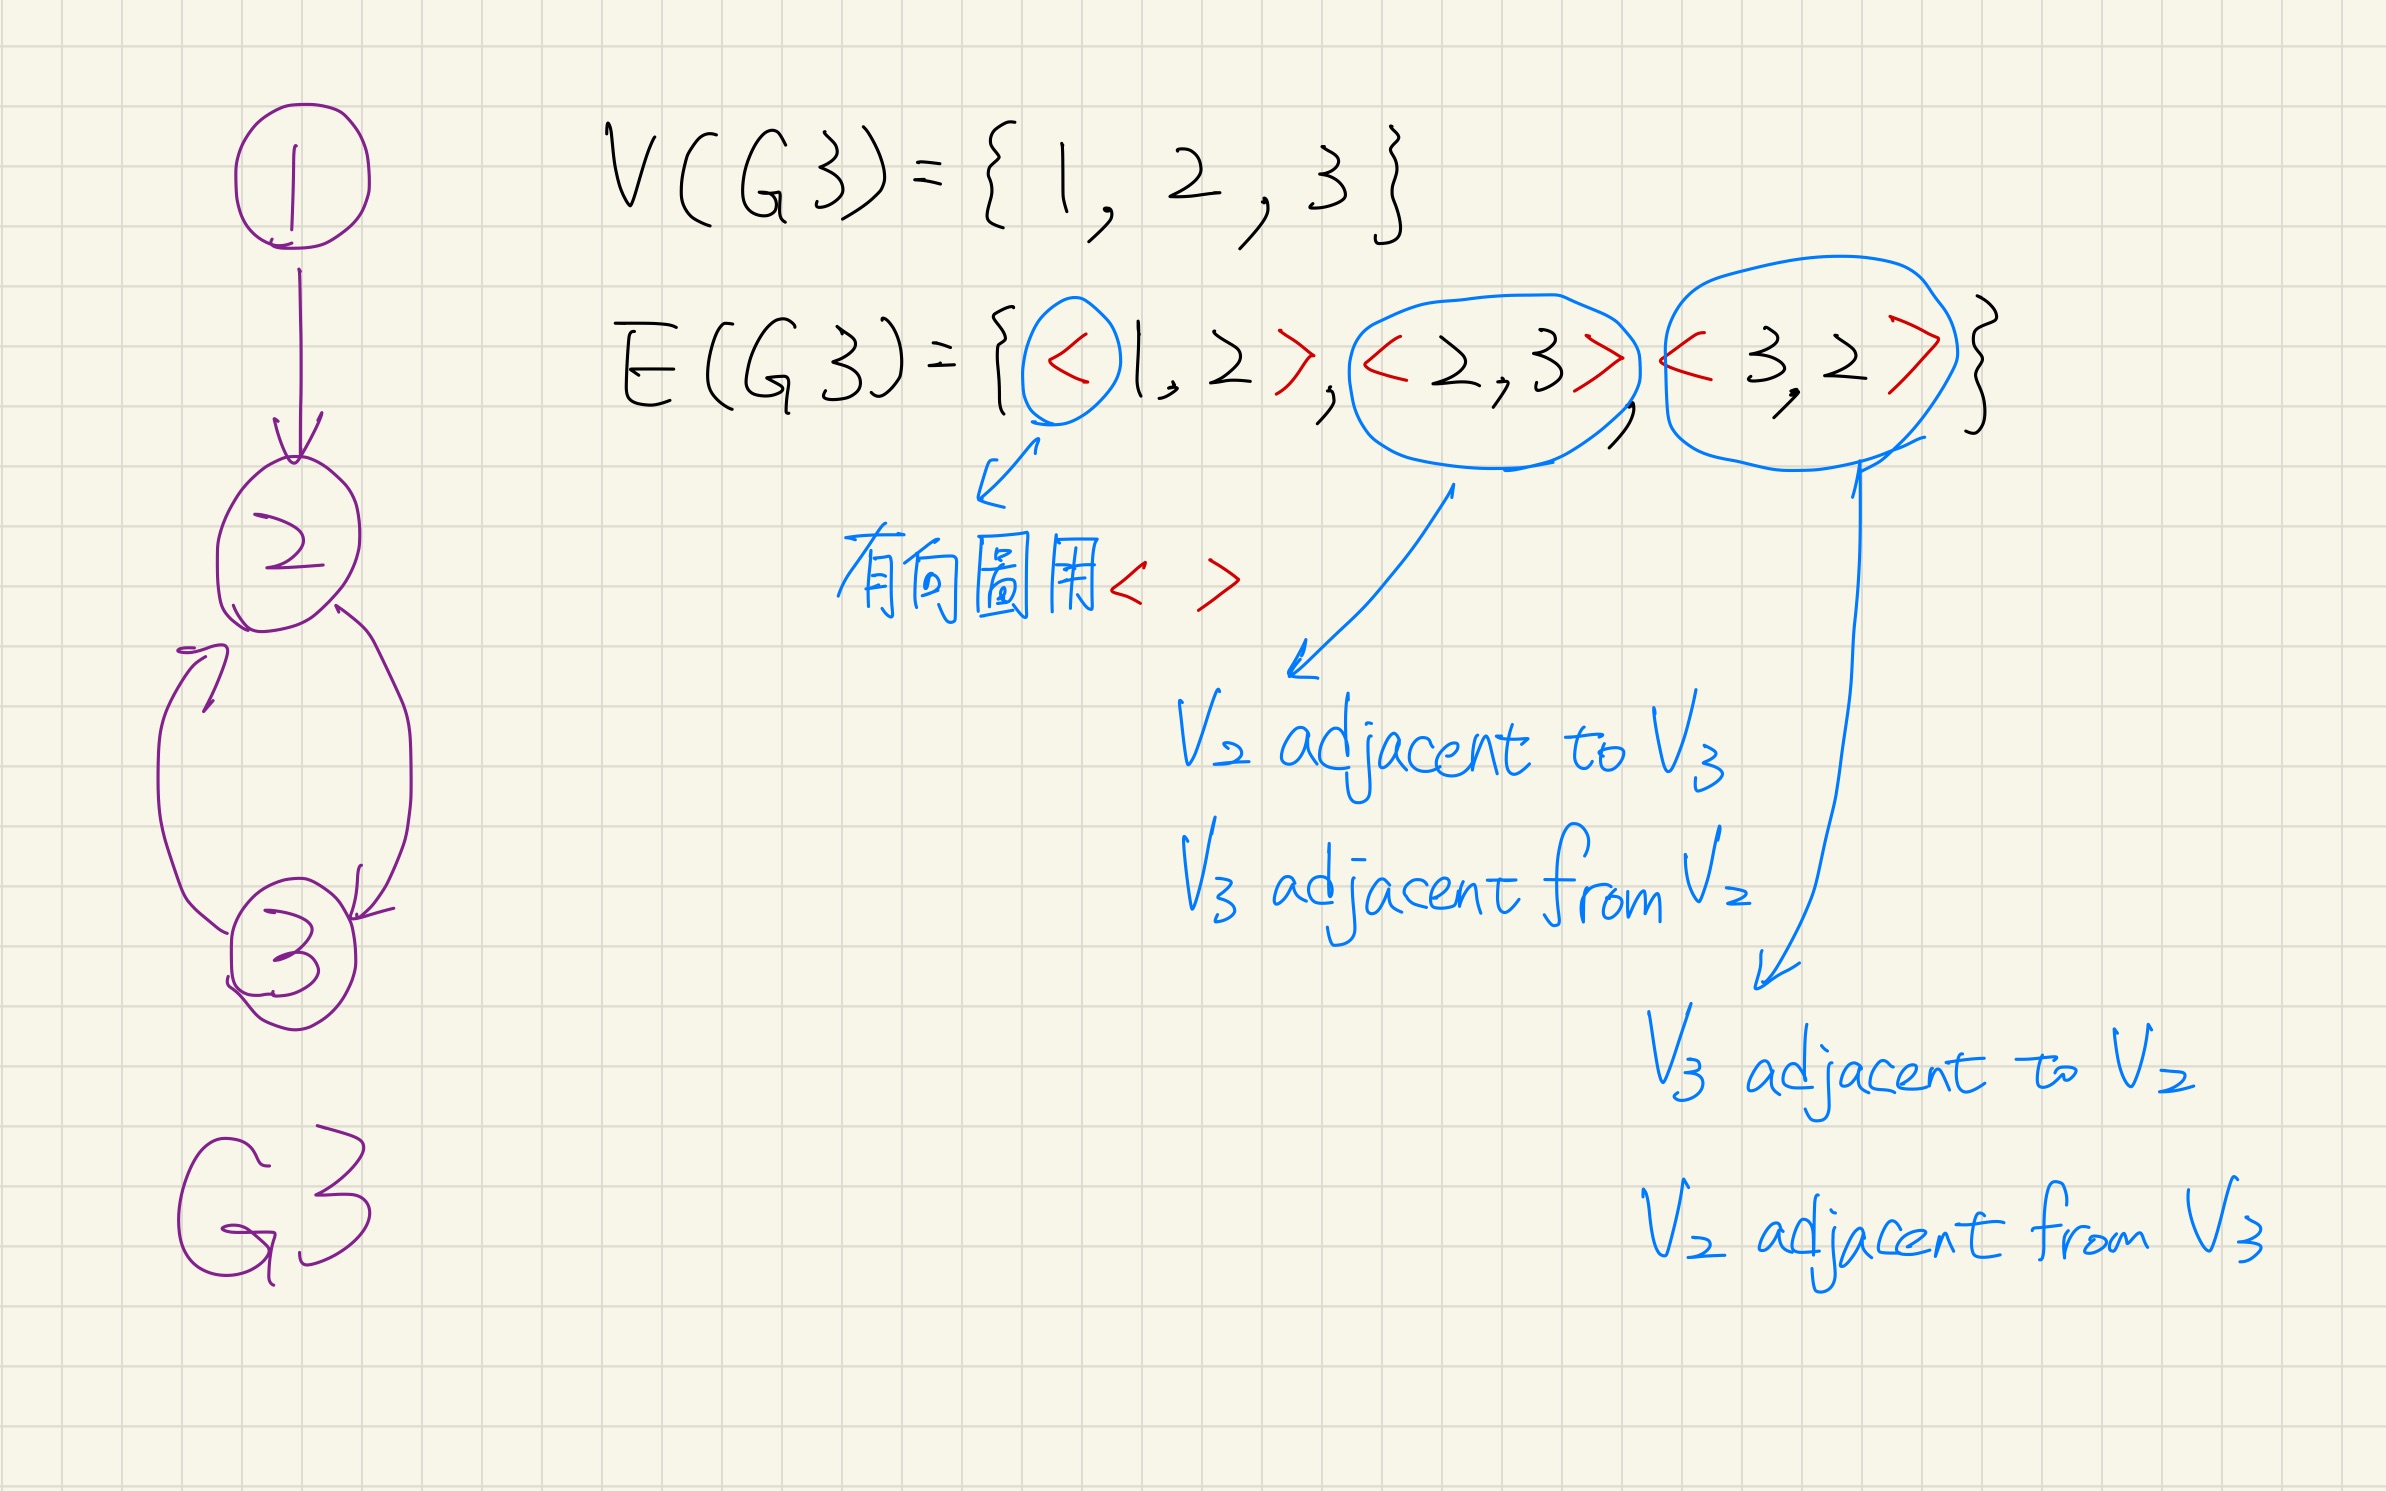 1
V(G3)={1, 2, 3}
E(G3)={<1,2>,<2,3>,<3,2>}
2
有向圖用< >
V2 adjacent to V3
V3 adjacent from V2
3
V3 adjacent to V2
V2 adjacent from V3
G3